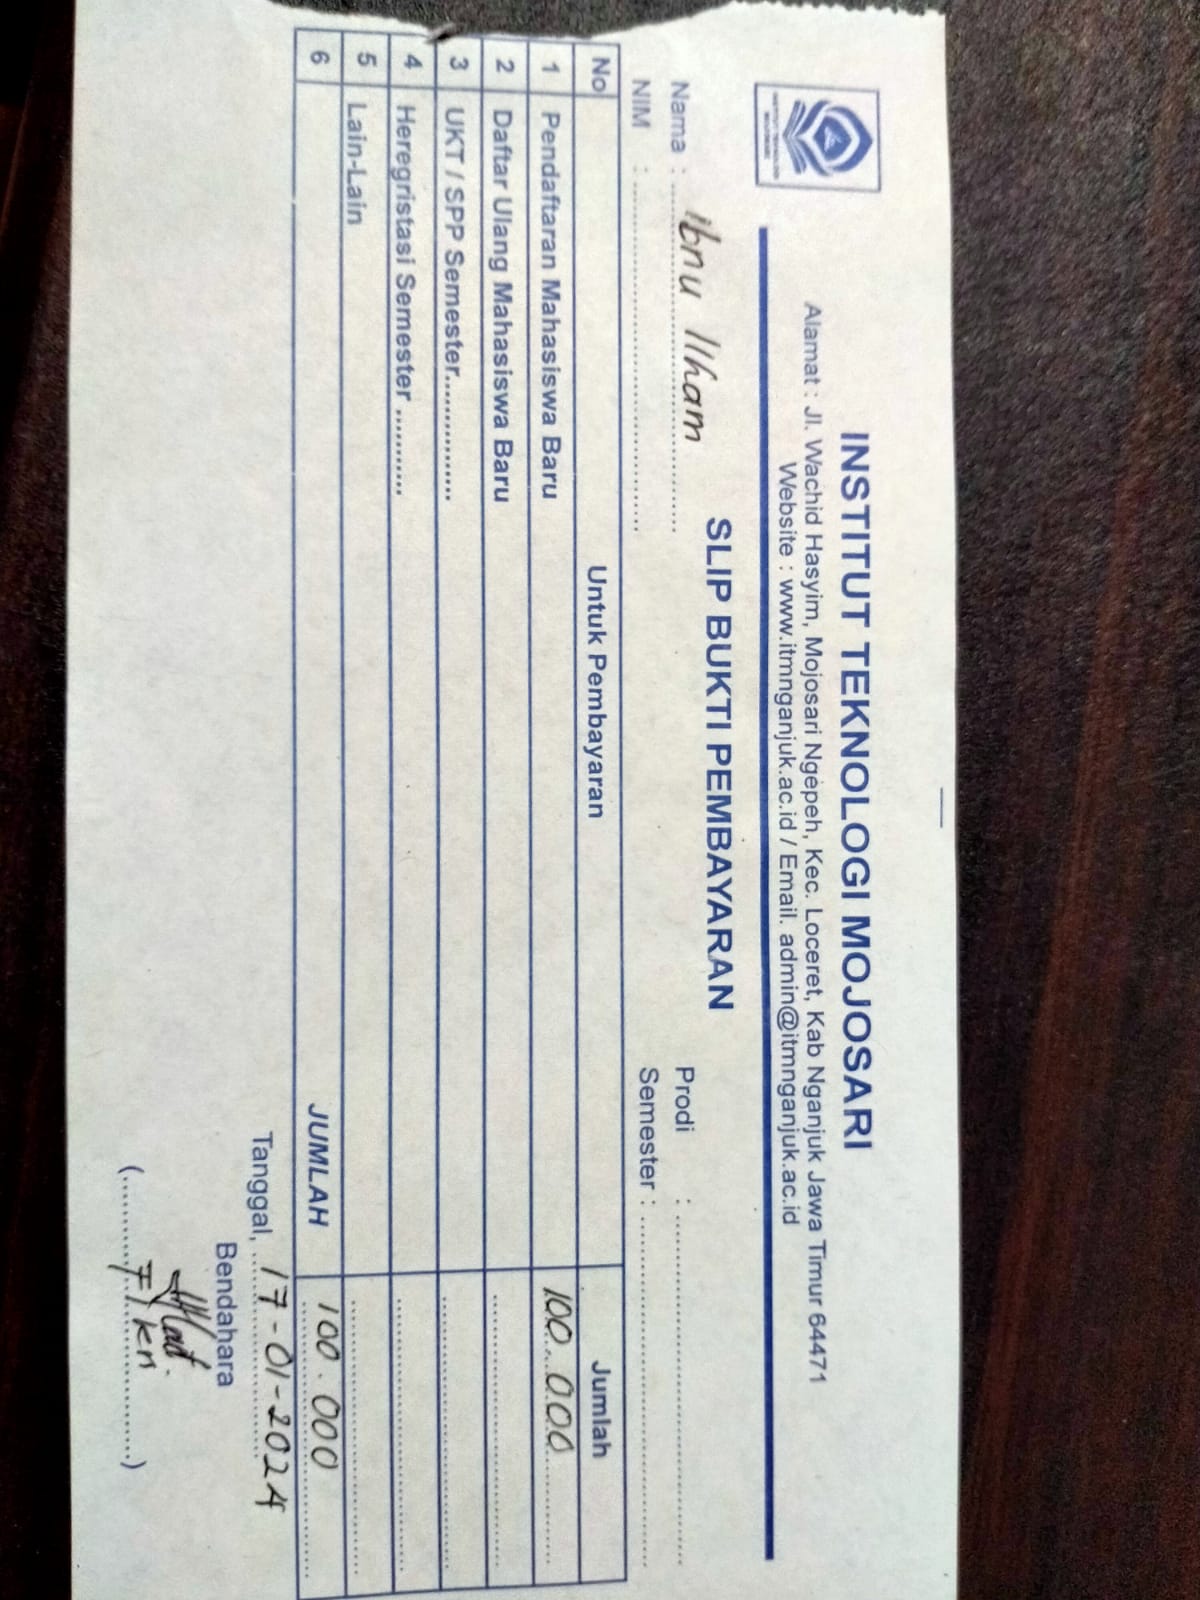 INSTITUT TEKNOLOGI MOJOSARI
Alamat : Jl. Wachid Hasyim, Mojosari Ngepeh, Kec. Loceret, Kab Nganjuk Jawa Timur 64471
Website : www.itmnganjuk.ac.id / Email. admin@itmnganjuk.ac.id
SLIP BUKTI PEMBAYARAN
Nama : Ibnu Ilham Prodi :
NIM : Semester :
No Untuk Pembayaran Jumlah
1 Pendaftaran Mahasiswa Baru 100.000
2 Daftar Ulang Mahasiswa Baru
3 UKT / SPP Semester..............
4 Heregristasi Semester ...........
5 Lain-Lain
6 JUMLAH 100.000
Tanggal, 17-01-2024
Bendahara